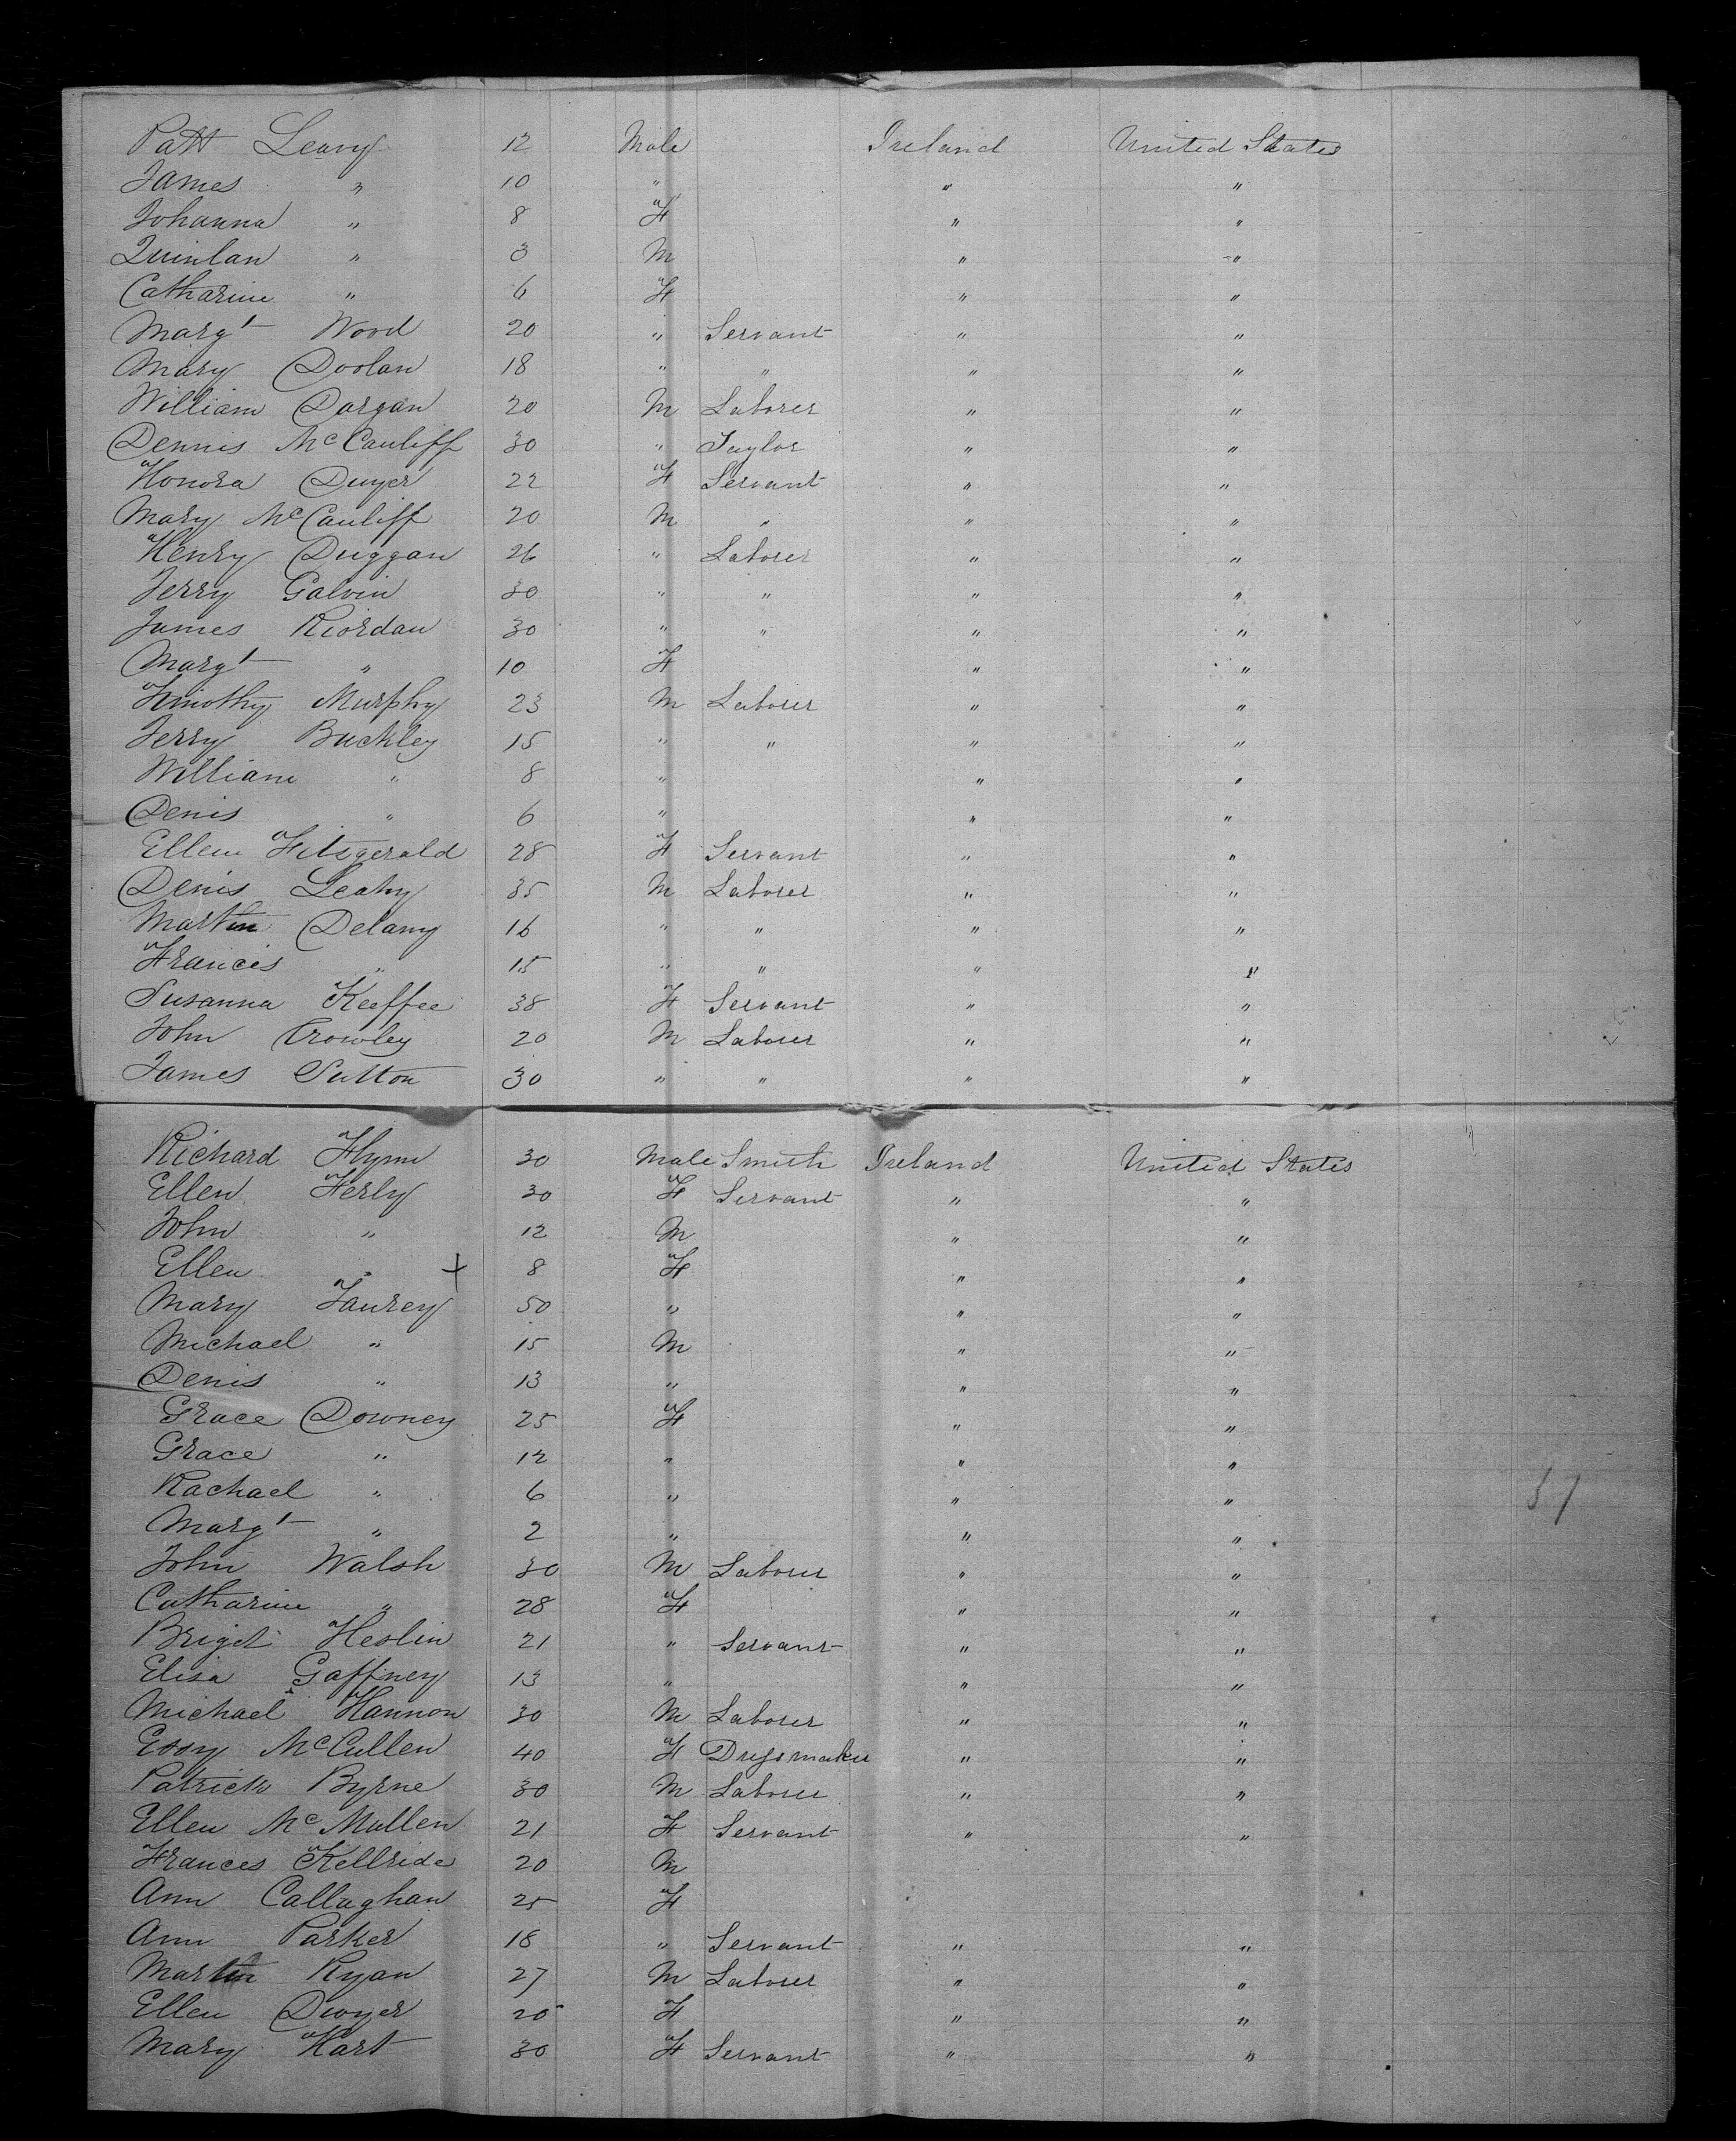 Patt Leavy 12 Male Ireland United States
James " 10 " " "
Johanna " 8 F " "
Quinlan " 3 M " "
Catharine " 6 F " "
Margt Wood 20 " Servant " "
Mary Doolan 18 " " " "
William Dargan 20 M Laborer " "
Dennis McCauliff 30 " Taylor " "
Honora Dwyer 22 F Servant " "
Mary McCauliff 20 M " " "
Henry Duggan 26 " Laborer " "
Jerry Galvin 30 " " " "
James Riordan 30 " " " "
Margt " 10 F " "
Timothy Murphy 23 M Laborer " "
Jerry Buckley 15 " " " "
William " 8 " " "
Denis " 6 " " "
Ellen Fitzgerald 28 F Servant " "
Denis Leahy 35 M Laborer " "
Martin Delany 16 " " " "
Francis " 15 " " " "
Susanna Keeffee 38 F Servant " "
John Crowley 20 M Laborer " "
James Sutton 30 " " " "
Richard Flynn 30 Male Smith Ireland United States
Ellen Ferly 30 F Servant " "
John " 12 M " "
Ellen " + 8 F " "
Mary 50 " " "
Michael " 15 M " "
Denis " 13 " " "
Grace Downey 25 F " "
Grace " 12 " " "
Rachael " 6 " " "
Margt " 2 " " "
John Walsh 30 M Laborer " "
Catharine " 28 F " "
Briget Heslin 21 " Servant " "
Elisa Gaffney 13 " " "
Michael Hannon 30 M Laborer " "
Essy McCullen 40 F Dressmaker " "
Patrick Byrne 30 M Laborer " "
Ellen McMullen 21 F Servant " "
Frances Kellride 20 M
Ann Callaghan 25 F
Ann Parker 18 " Servant " "
Martin Ryan 27 M Laborer " "
Ellen Dwyer 20 F " "
Mary Hart 30 F Servant " "
37